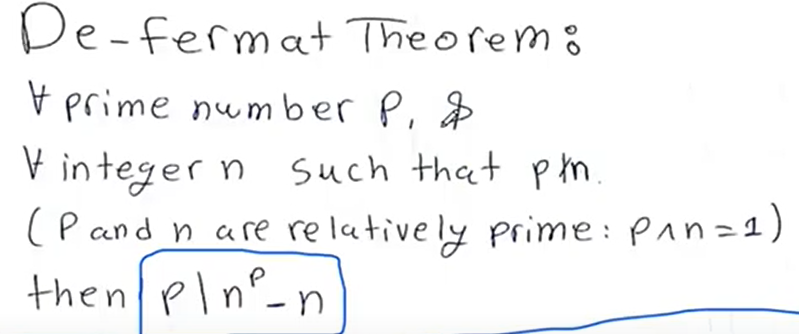 De-fermat Theorem:
∀ prime number P, &
∀ integer n such that p∤n.
(P and n are relatively prime: p∧n=1)
then p|nᵖ-n